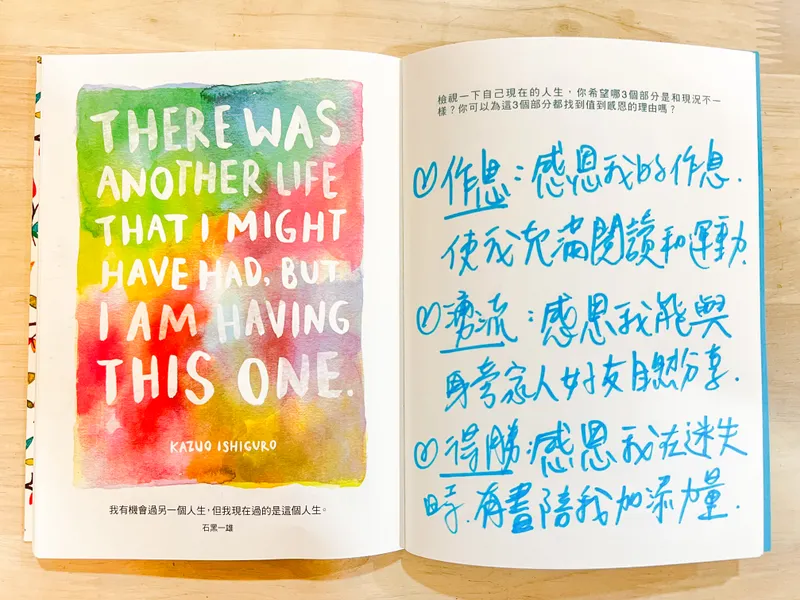 THERE WAS
ANOTHER LIFE
THAT I MIGHT
HAVE HAD, BUT
I AM HAVING
THIS ONE.
KAZUO ISHIGURO
我有機會過另一個人生，但我現在過的是這個人生。
石黑一雄
檢視一下自己現在的人生，你希望哪3個部分是和現況不一
樣？你可以為這3個部分都找到值到感恩的理由嗎？
作息：感恩我的作息.
使我充滿閱讀和運動.
湧流：感恩我能與
身旁家人好友自然分享.
得勝：感恩我在迷失
時.有書陪我加添力量.